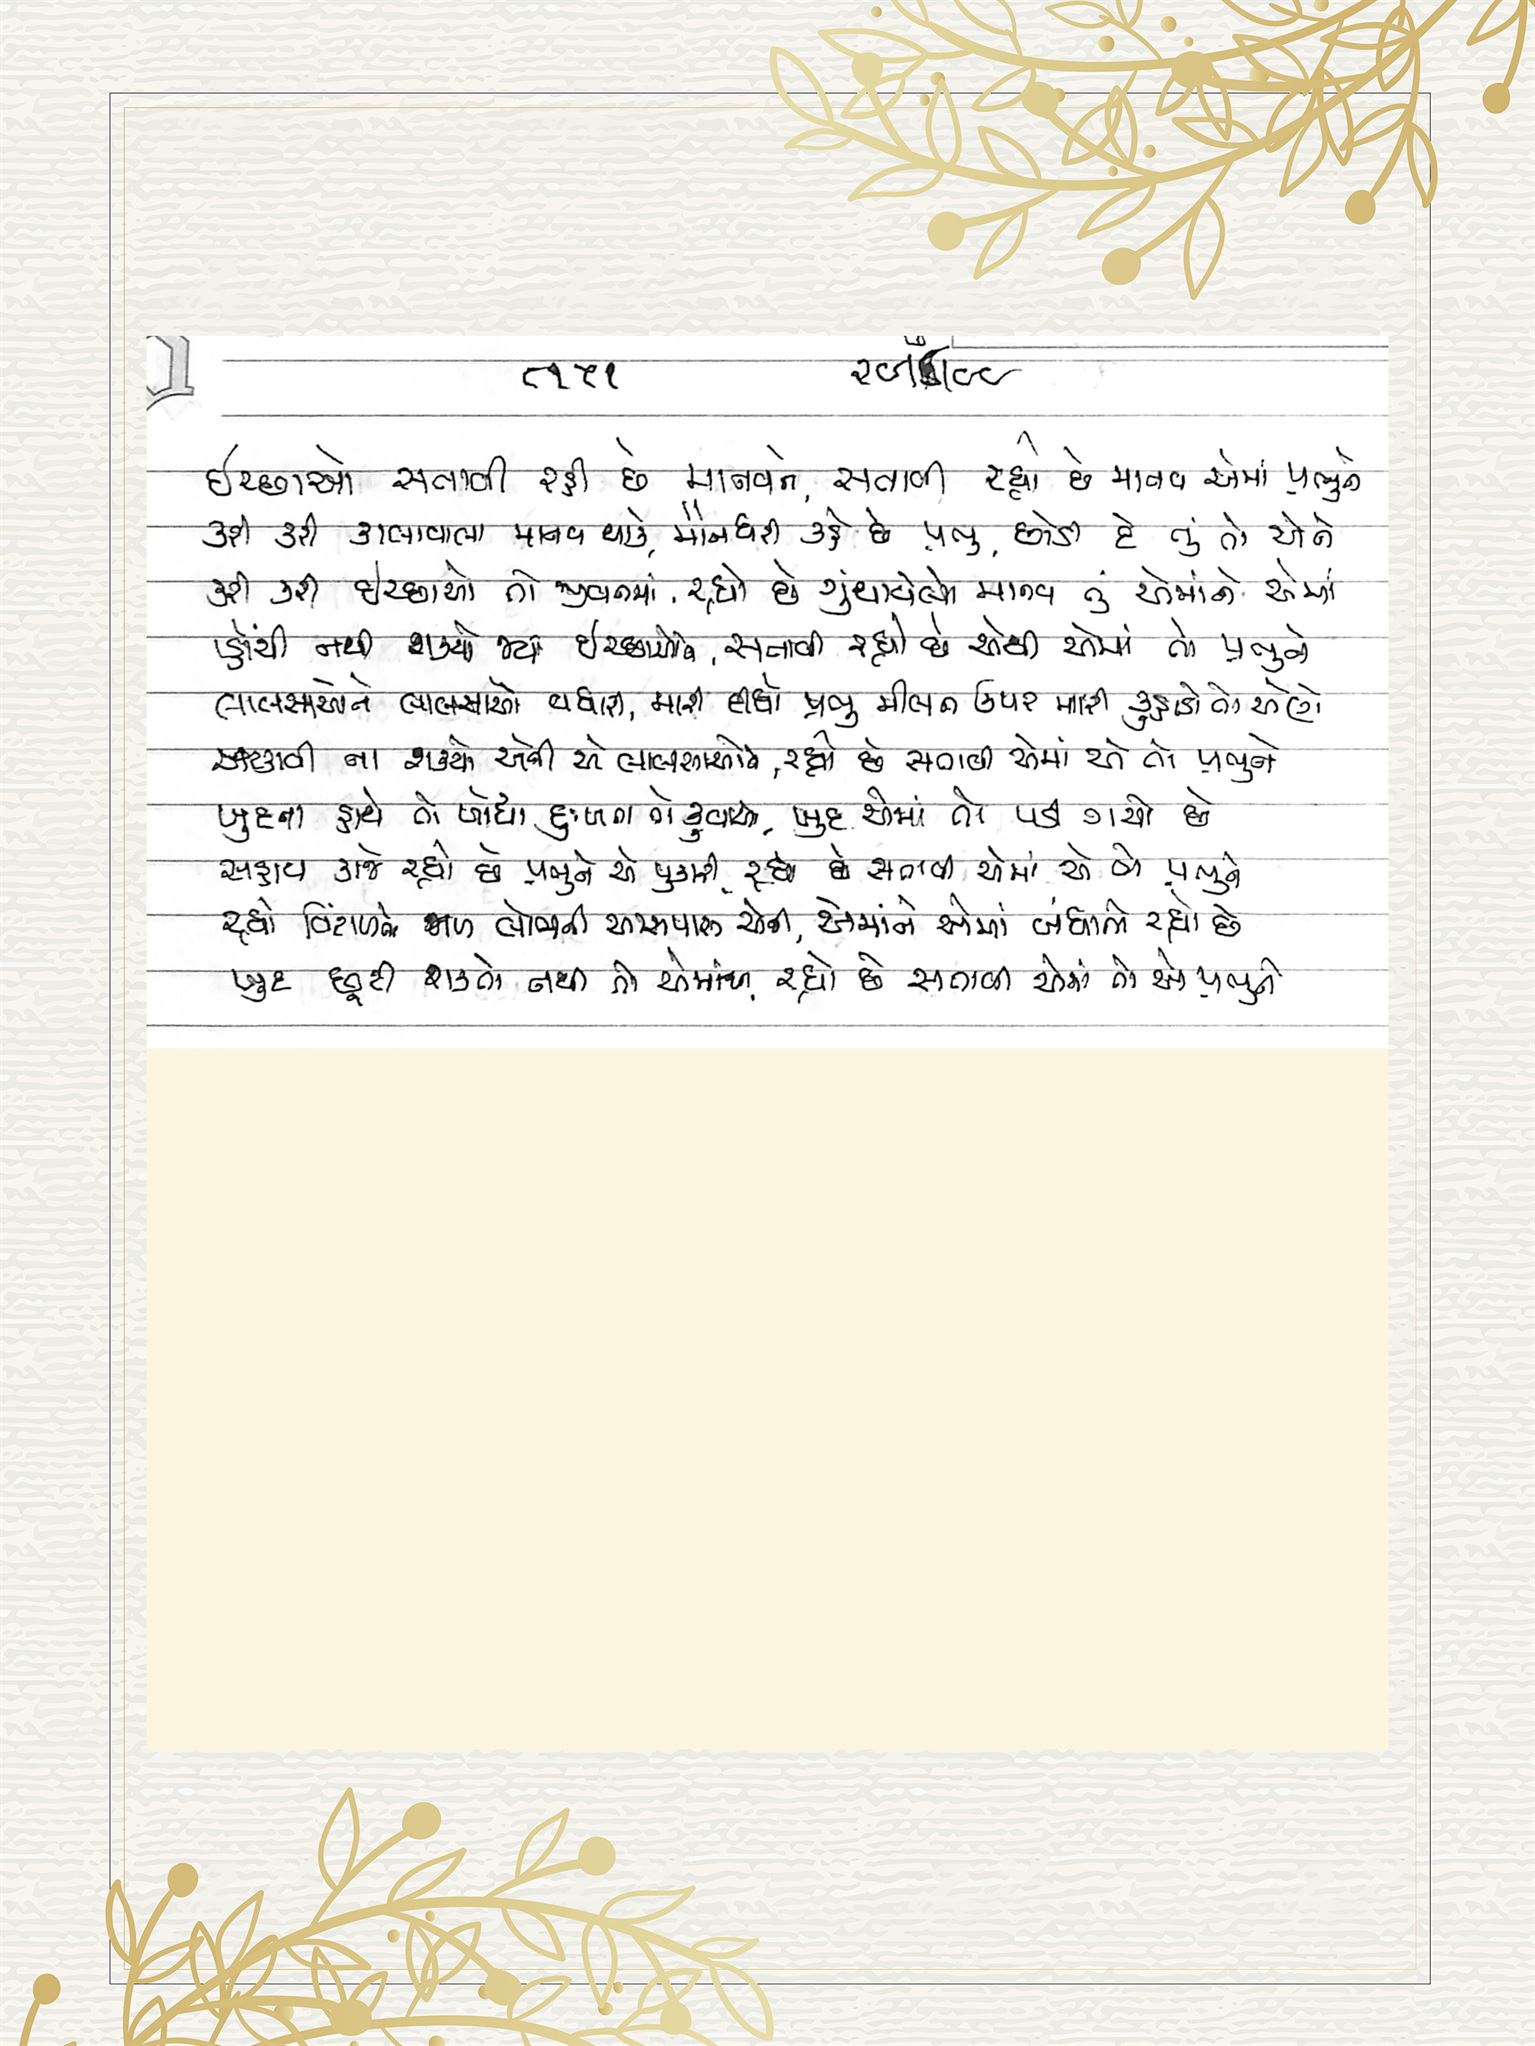 ઈચ્છાઓ સતાવી રહી છે માનવને, સતાવી રહ્યો છે માનવ એમાં પ્રભુને
કરી કરી કાલાવાલા માનવ થાકે, મૌનધરી કહે છે પ્રભુ, છોડી દે તું તો એને
કરી કરી ઈચ્છાઓ તો જીવનમાં, રહ્યો છે ગુંથાયેલો માનવ તું એમાંને એમાં
પહોંચી નથી શક્યો જ્યાં ઈચ્છાઓને, સતાવી રહ્યો છે એથી એમાં તો પ્રભુને
લાલસાઓને લાલસાઓ વધારી, મારી દીધો પ્રભુ મીલન ઉપર મારી કુહાડો તો એણે
અટકાવી ના શક્યો એની એ લાલસાઓને, રહ્યો છે સતાવી એમાં એ તો પ્રભુને
ખુદના હાથે તો ખોદ્યા દુઃખના તો કુવાઓ, ખુદ એમાં તો પડી ગયો છે
સહાય કાજે રહ્યો છે પ્રભુને એ પુકારી, રહ્યો છે સતાવી એમાં એ તો પ્રભુને
રહ્યો વિંટાળીને જાળ લોભની આસપાસ એની, એમાંને એમાં બંધાતો રહ્યો છે
ખુદ છૂટી શકતો નથી તો એમાંથી, રહ્યો છે સતાવી એમાં તો એ પ્રભુને